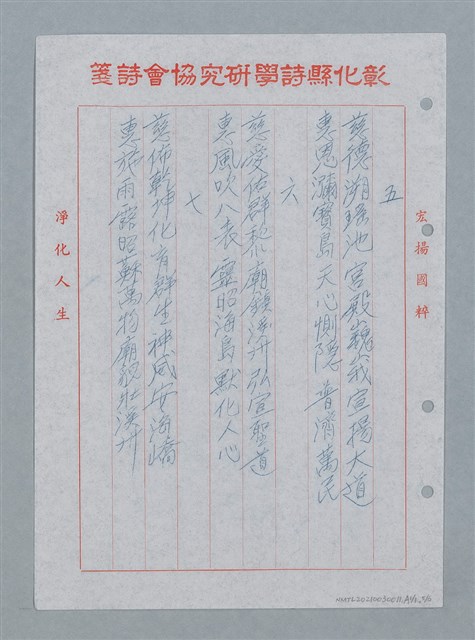 彰化縣詩學研究協會詩箋
宏揚國粹
五
慈德溯瑤池宮殿巍峨宣揚大道
惠恩瀰寶島天心惻隱普濟萬民
六
慈愛佑群黎廟鎮溪州弘宣聖道
惠風吹八表靈昭海島默化人心
七
慈佈乾坤化育群生神威安海嶠
惠施雨露昭蘇萬物廟貌壯溪州
淨化人生